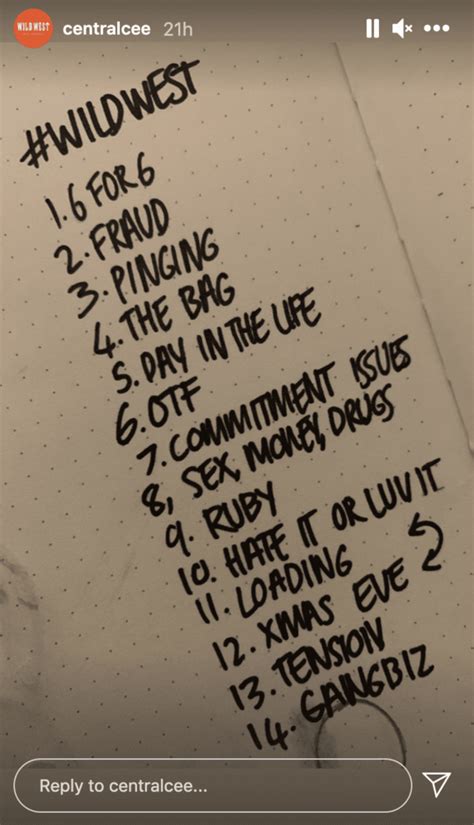 WILD WEST
centralcee 21h
#WILDWEST
1. 6 FOR 6
2. FRAUD
3. PINGING
4. THE BAG
5. DAY IN THE LIFE
6. OTF
7. COMMITMENT ISSUES
8, SEX, MONEY, DRUGS
9. RUBY
10. HATE IT OR LUV IT
11. LOADING
12. XMAS EVE
13. TENSION
14. GANGBIZ
Reply to centralcee...